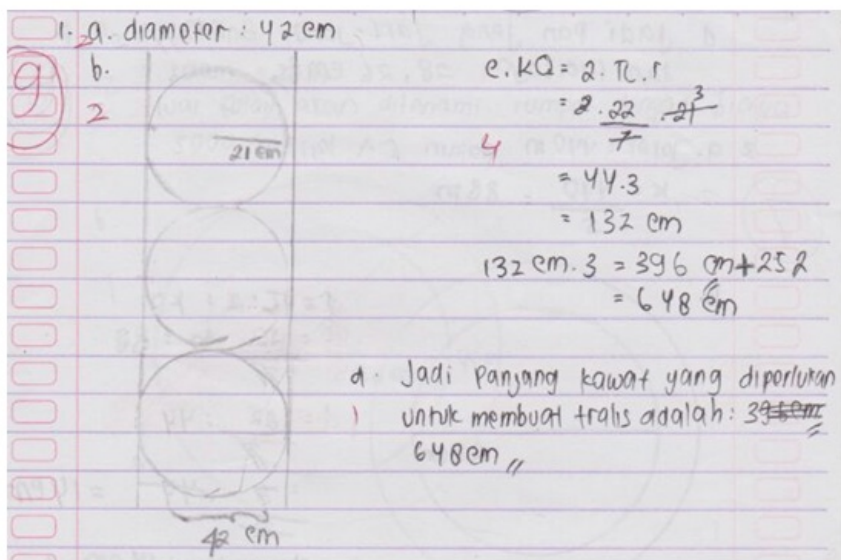 1. a. diameter : 42 cm
2
9
b.
2
21 cm
42 cm
c. KO = 2. π. r
= 2 . 22/7 . 21 3
4
= 44.3
= 132 cm
132 cm . 3 = 396 cm + 252
= 648 cm
d Jadi Panjang kawat yang diperlukan
1 untuk membuat tralis adalah : 396 cm
648 cm //